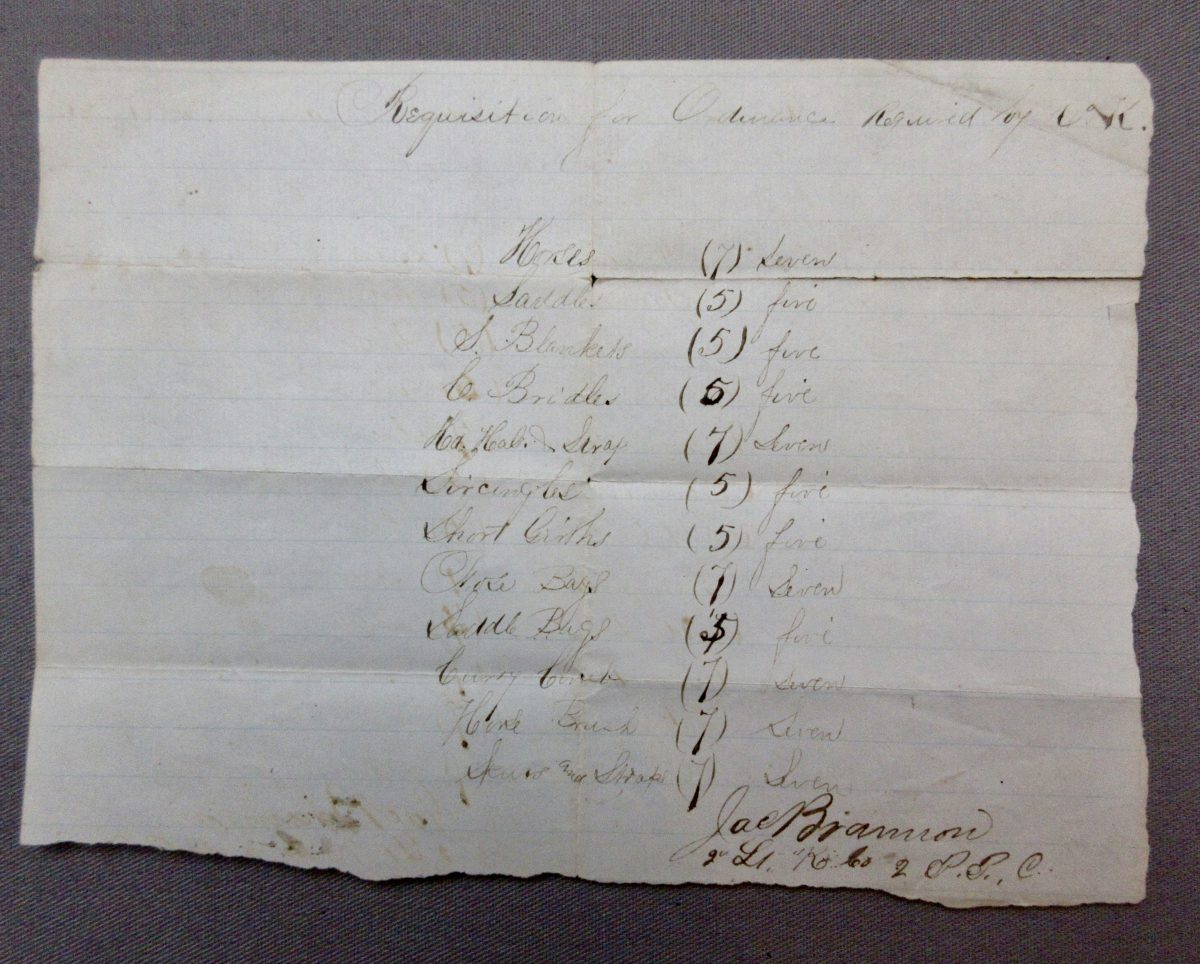 Requisition for Ordinance Required by Co. K.
Horses (7) Seven
Saddles (5) five
S. Blankets (5) five
C. Bridles (5) five
Hd. Hal. & Strap (7) Seven
Sircingles (5) five
Short Girths (5) five
Nose Bags (7) Seven
Saddle Bags (5) five
Curry Comb (7) Seven
Horse Brush (7) Seven
Spurs and Straps (7) Seven
Jac Brannon
2" Lt. "K" Co 2 P.P., C.